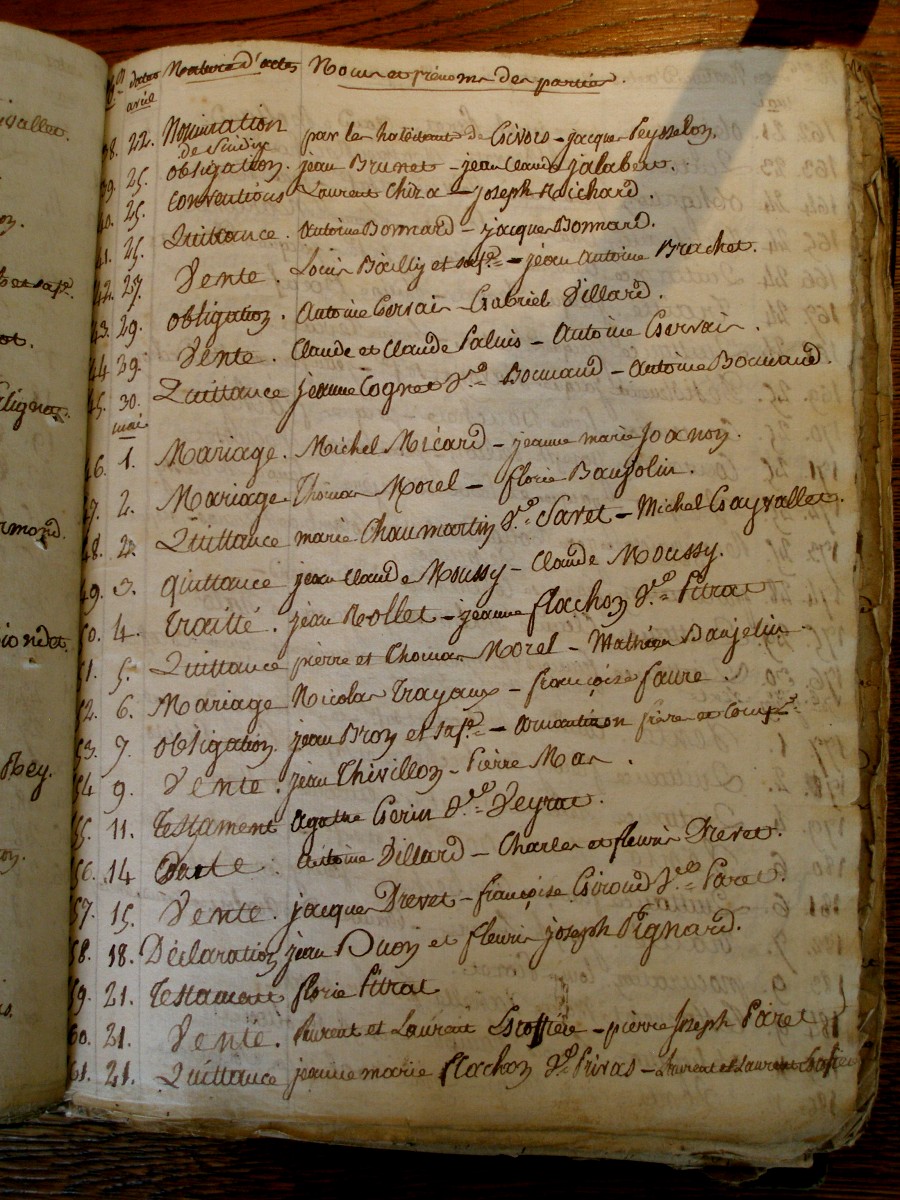 dates Nature d'actes Noms et prénoms des parties.
avril
38. 22. Nomination par les habitants de Givors - jacques Peysselon.
de Sindix
39. 25. obligation. jean Brunet - jean Claude jalabert.
40. 25. Conventions Laurent Chiza - Joseph Raichard.
41. 25. Quittance. Antoine Bonnard - jacques Bonnard.
42. 27. Vente. Louis Bailly et sa fe. - jean Antoine Brachet.
43. 29. obligation. Antoine Gervais - Gabriel Villard.
44. 29. Vente. Claude et Claude Paluis - Antoine Gervais.
45. 30. Quittance jeanne Cognet Ve. Bonnand - Antoine Bonnand.
mai
46. 1. Mariage. Michel Micard - jeanne marie Joanon.
47. 2. Mariage Thomas Morel - florie Baujolin.
48. 2. Quittance marie Chaumartin Ve. Savet - Michel Gayvallet.
49. 3. quittance jean Claude Moussy - Claude Moussy.
50. 4. traitté. jean Rollet - jeanne flachon Ve. Pitrat
51. 5. Quittance pierre et Thomas Morel - Mathieu Baujelin.
52. 6. Mariage Nicolas Trayaux - françoise faure.
53. 7. obligation. jean Bron et sa fe. - frère et
54. 9. Vente. jean Thivillon - Pierre Mas.
55. 11. Testament Agathe Gerin Ve. Veyrat.
56. 14 Antoine Villard - Charles et fleuris Drevet.
57. 15. Vente. jacques Drevet - françoise Giroud Ve. Paret.
58. 18. Déclaration jean Duon et fleuris joseph Pignard.
59. 21. Testament florie Pitrat
60. 21. Vente. Laurent et Laurent Escoffiée - pierre Joseph Paret
61. 21. Quittance jeanne marie flachon Ve. Privas - Laurent et Laurent
vallet.
Rey.